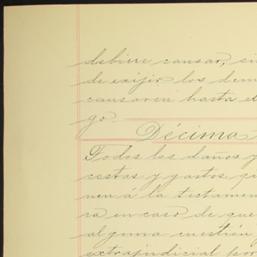 debiere causar, si
de exijir los dem
causaren hasta el
go.
Décima
Todos los daños y
costas y gastos, qu
nen á la testamen
ra en caso de que
alguna cuestión
extrajudicial por